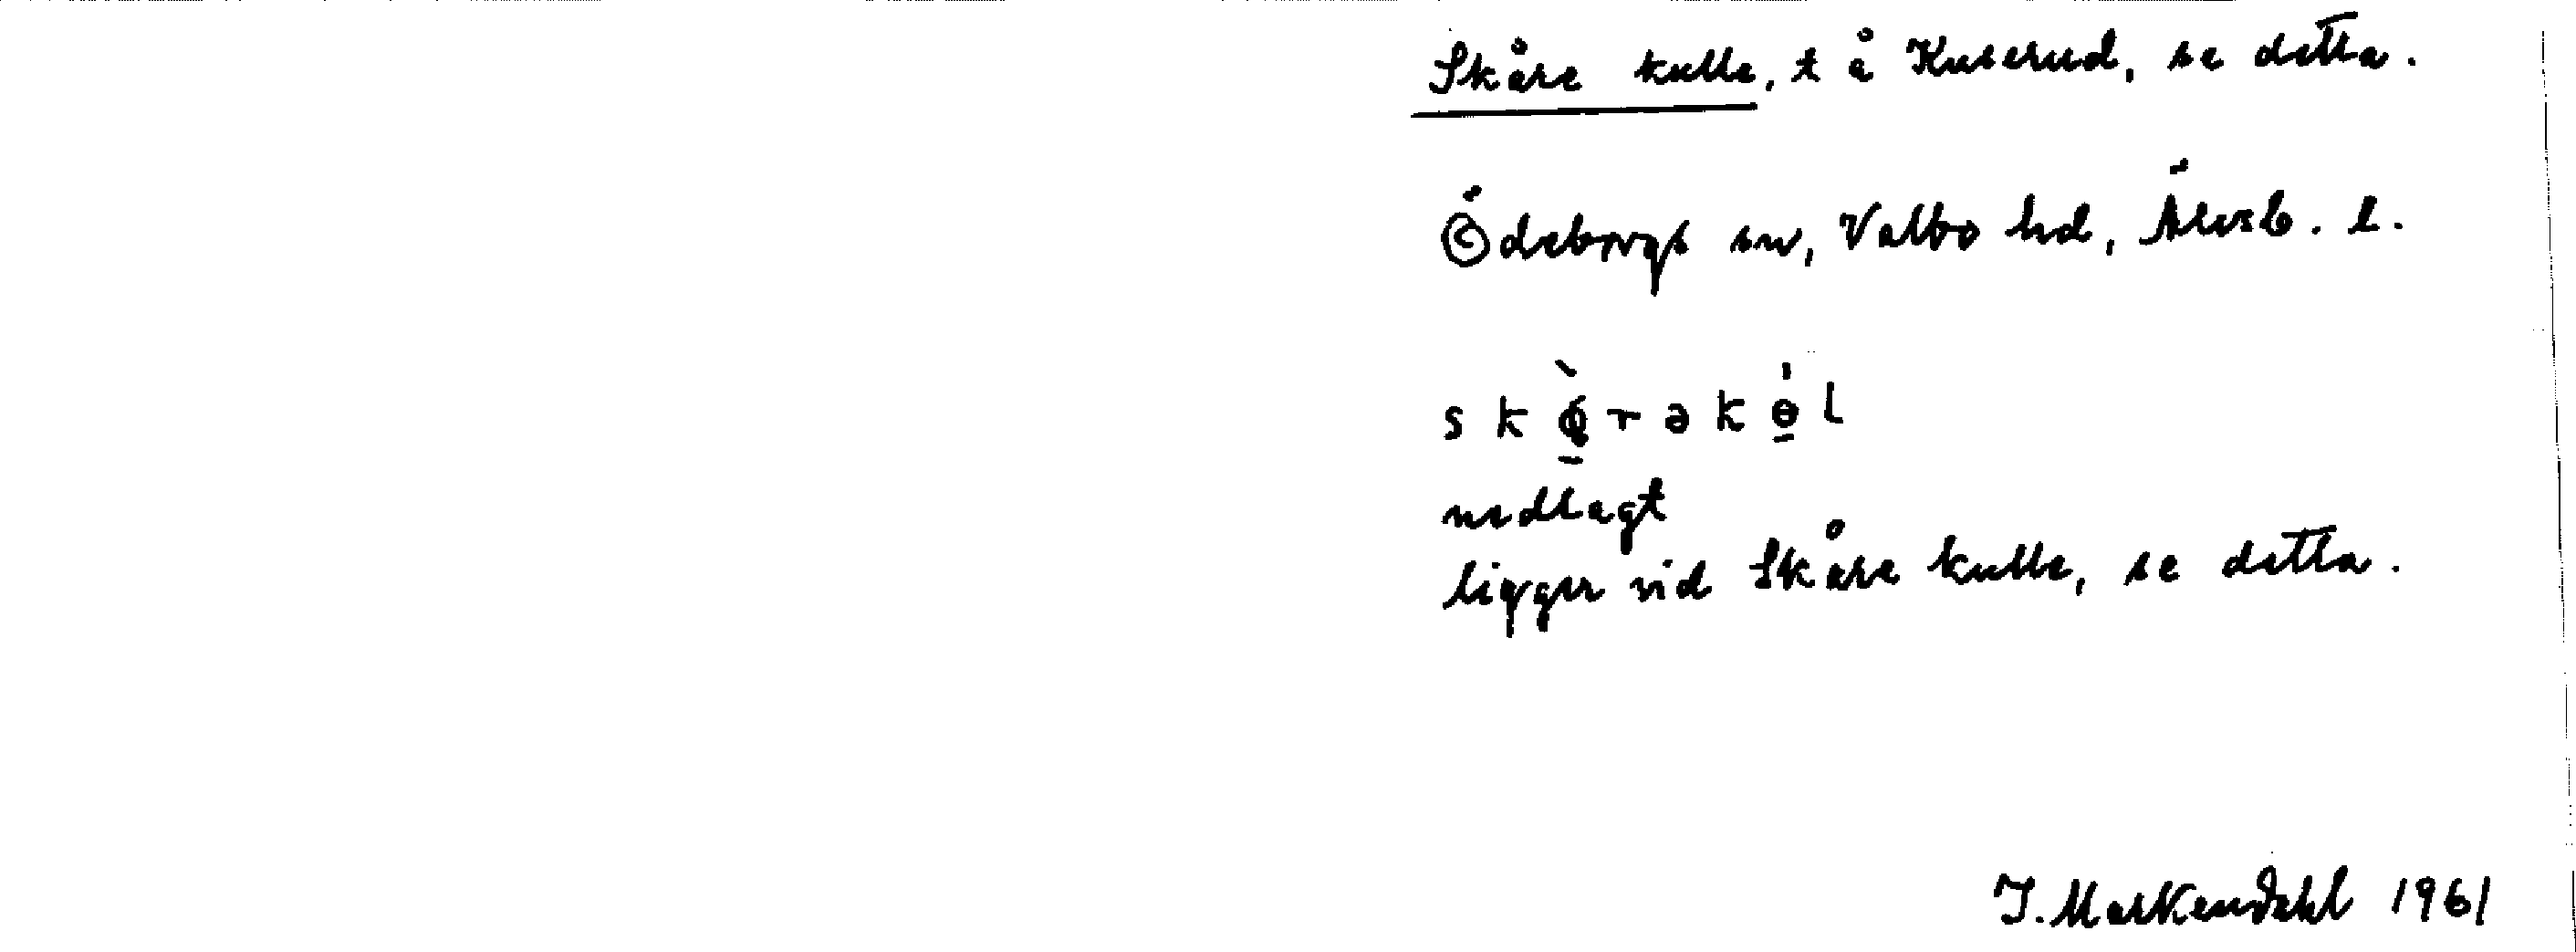 Skåre kulle, t å Kuserud, se detta.
Ödeborgs sn, Valbo hd, Älvsb. l.
skǫ̀rəkө̱́l
nedlagt
ligger vid Skåre kulle, se detta.
I. Markendahl 1961